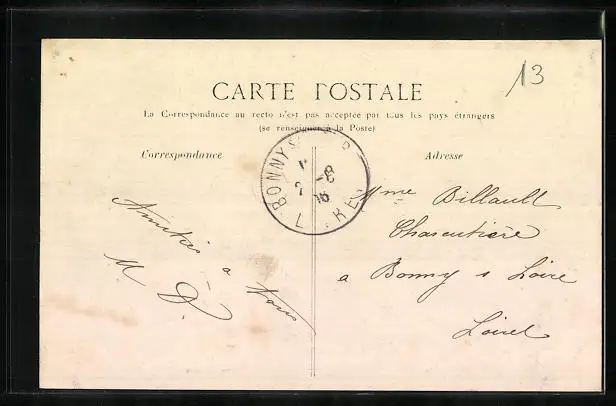 13
CARTE POSTALE
La Correspondance au recto n'est pas acceptée par tous les pays étrangers
(se renseigner à la Poste)
Correspondance
Adresse
BONNY S
Amitiés
a Vous
M D.
Mme Billault
Charcutière
a Bonny s Loire
Loiret